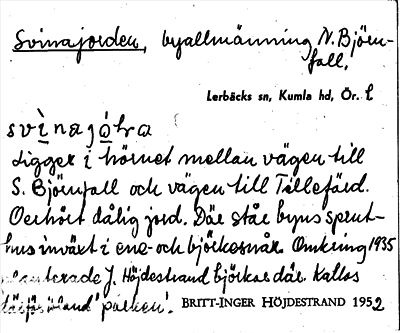 Svinajorden, byallmänning N. Björn-
fall.
Lerbäcks sn, Kumla hd, Ör. l
svìnajó̱ɭa
Ligger i hörnet mellan vägen till
S. Björnfall och vägen till Tillefärd.
Oerhört dålig jord. Där står byns sprut-
hus inväxt i ene- och björkesnår. Omkring 1935
planterade J. Höjdestrand björkar där. Kallas
därför ibland 'parken'. BRITT-INGER HÖJDESTRAND 1952